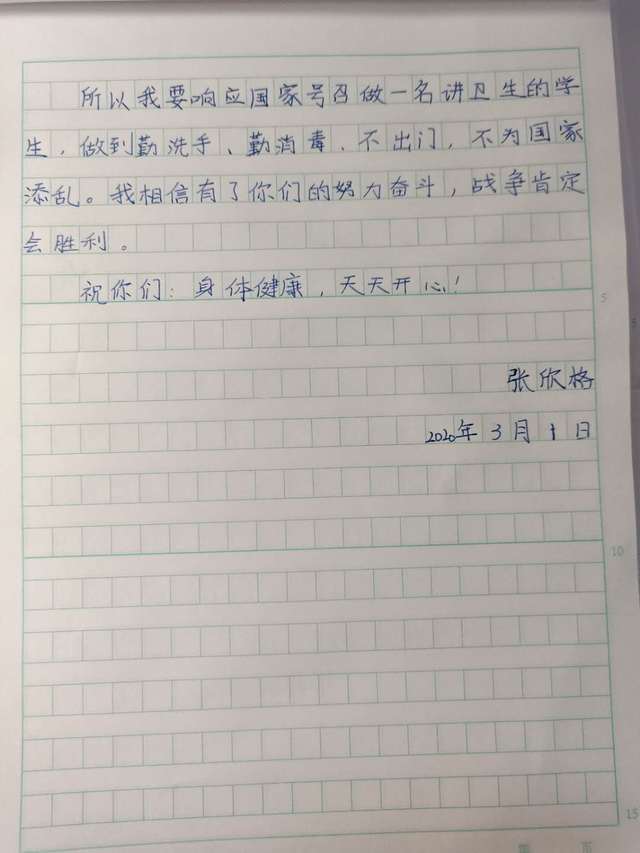 所以我要响应国家号召做一名讲卫生的学
生，做到勤洗手、勤消毒、不出门，不为国家
添乱。我相信有了你们的努力奋斗，战争肯定
会胜利。
祝你们：身体健康，天天开心！
5
张欣格
2020年3月1日
10
15
页